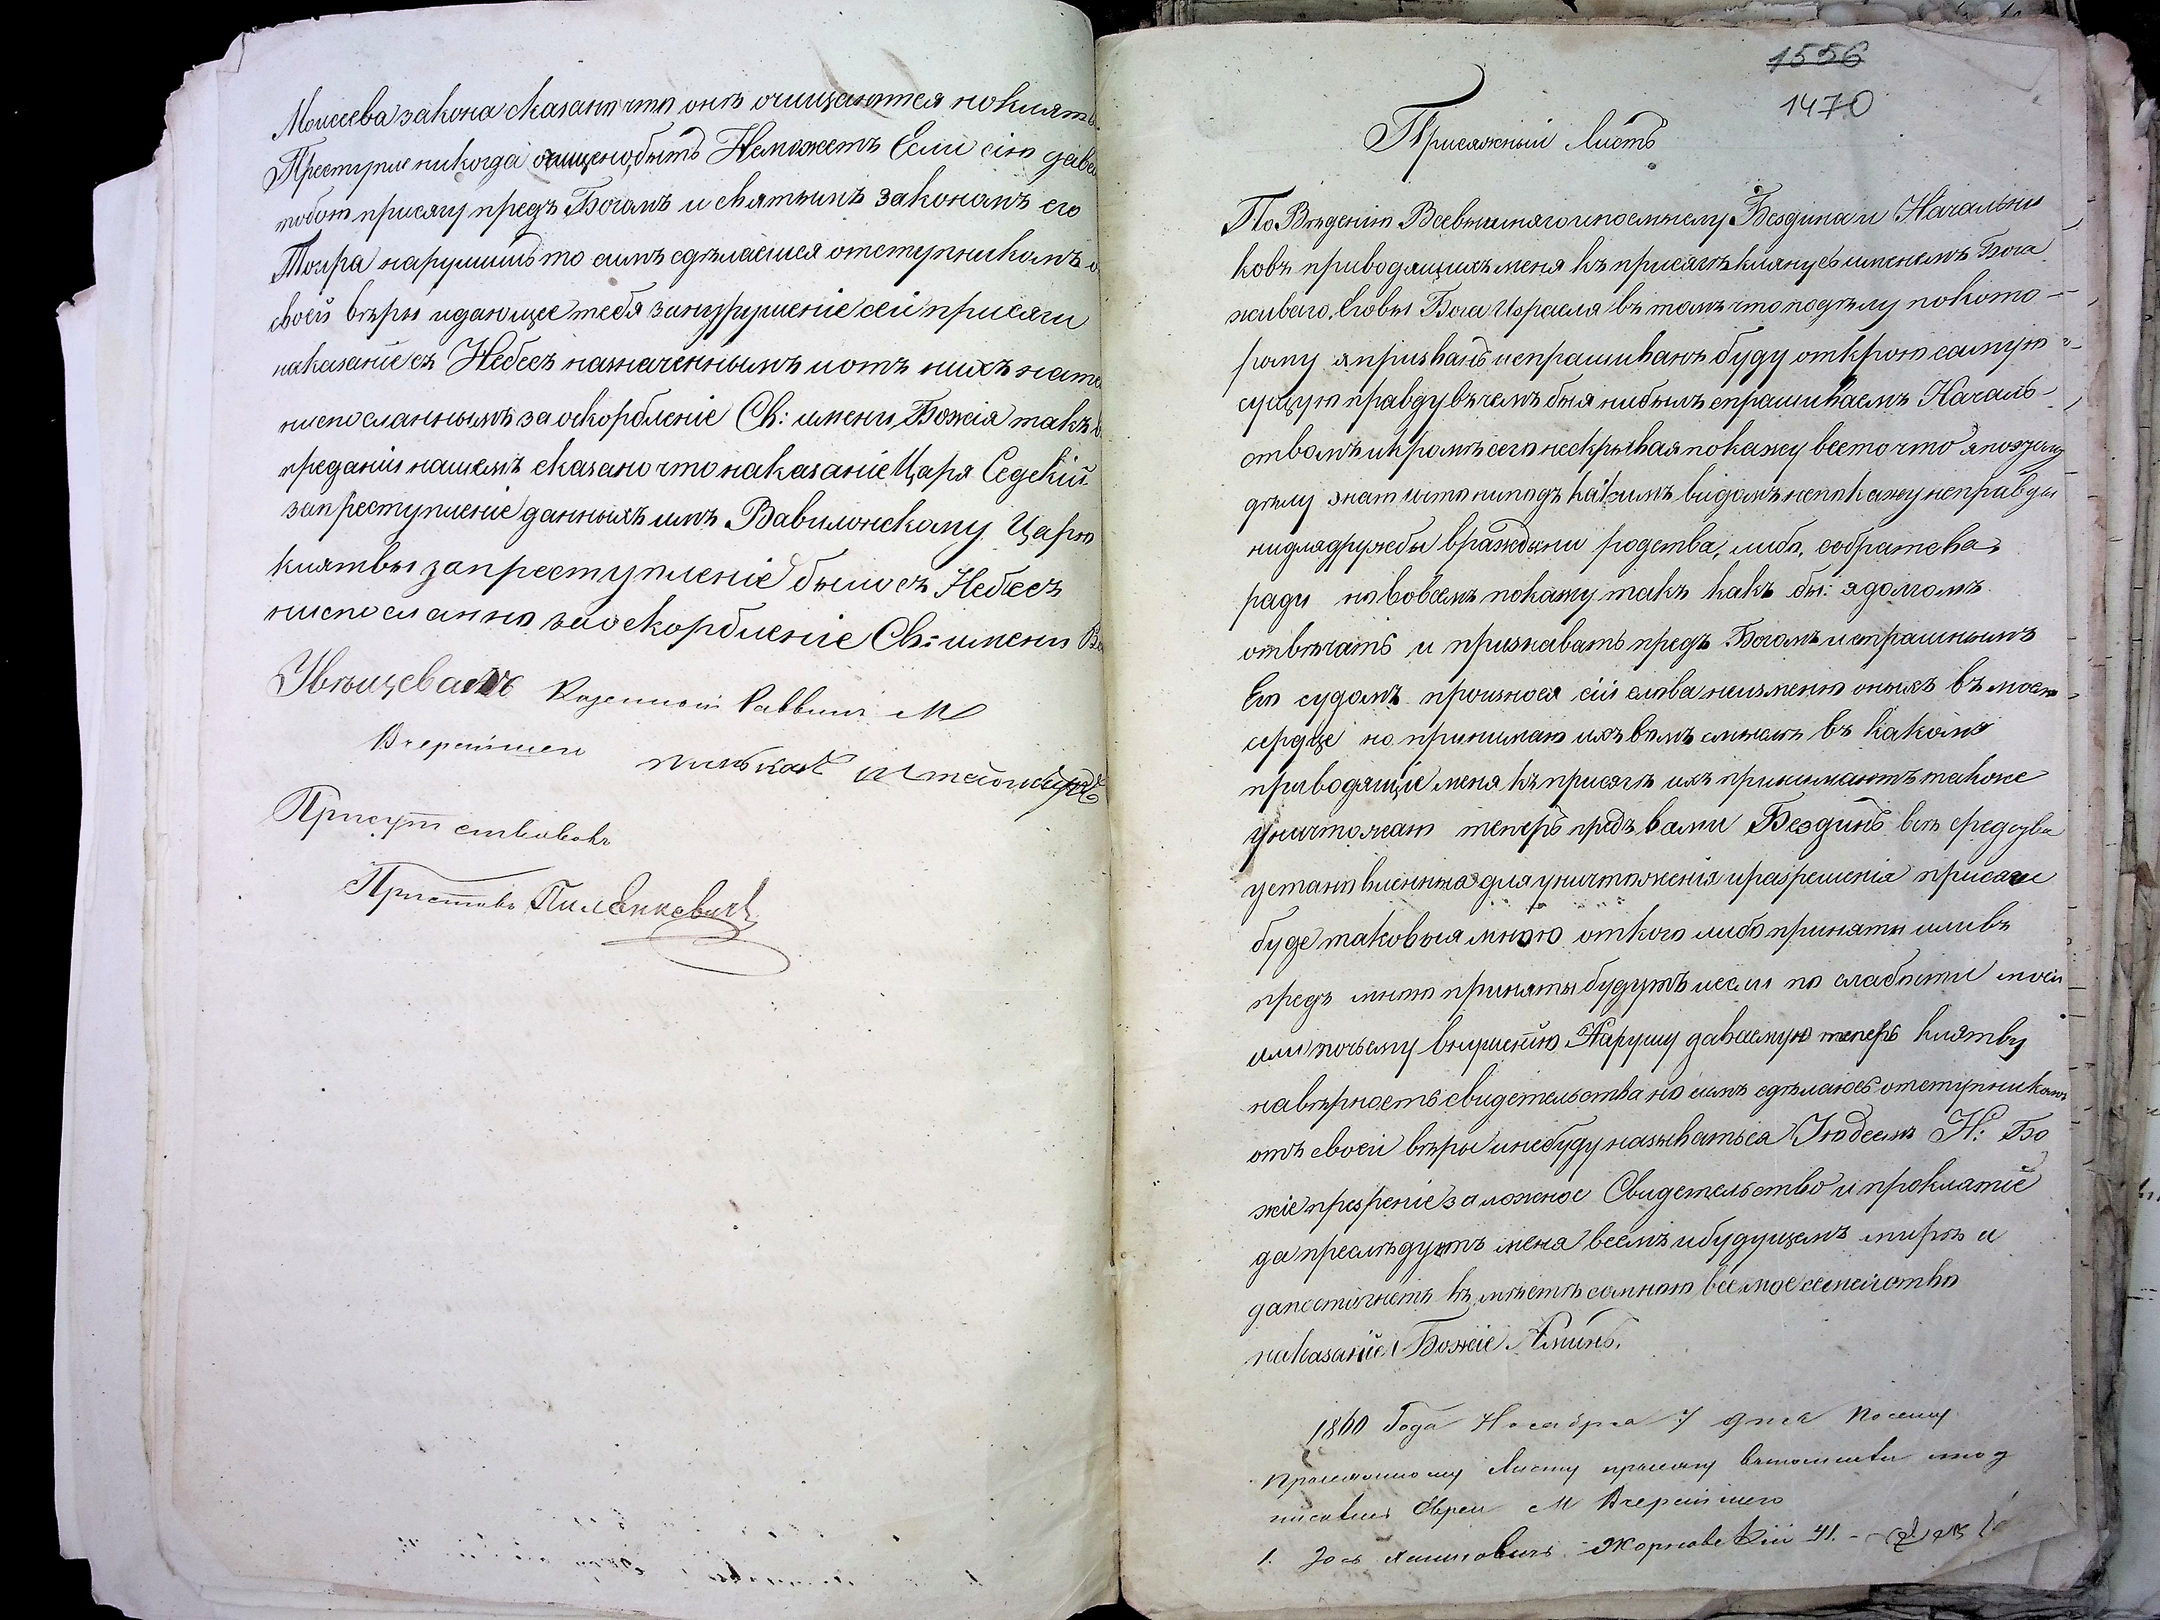 Моисеева закона сказано что онъ очищаются но клятвы
Преступле никогда очищено быть Неможетъ Если сію даваемую
тобою присягу предъ Богомъ и святымъ закономъ его
Тоира нарушишь то симъ сдѣлаешся отступникомъ
своей вѣры идающее тебя занузрушеніе сеи присяги
наказаніе съ Небесъ назначеннымъ иотъ нихъ
ниспосланнымъ за оскорбленіе Св: имени Божія такъ
преданіи нашемъ сказано что наказаніе Царя Седекій
запреступленіе данныхъ имъ Вавилонскому Царю
клятвы запреступленіе было съ Небесъ
ниспосланно заоскорбленіе Св: имени
Увѣщевалъ Казенный Раввинъ М
Вчерайшей
Присутствовалъ
Приставъ
1556
1470
Присяжный Листъ
По Вѣденію Всевышняго ипосмыслу Бездина и Начальни
ковъ приводящихъ меня къ присягѣ клянусь именемъ Бога
живаго Еговы Бога Израеля въ томъ что подѣлу покото-
рому япризванъ испрашиваюъ буду открою самую
сущую правду въчемъ бы я ни былъ спрашиваемъ Началь-
ствомъ икромѣ сего нескрывая покажу все то что япоэтому
дѣлу знаю што ниподъ какимъ видомъ непокажу неправды
нидлядружбы вражды ни родства, либо, собратства
ради но вовсемъ покажу такъ какъ бы: я долгомъ
отвѣчать и признавать предъ Богомъ истрашнымъ
Его судомъ произнося сіи слова неизменю оныхъ въ моемъ
сердце но принимаю ихъ вътѣ смыслѣ въ какомъ
приводящіе меня къ присягѣ ихъ принимаютъ такоже
уничтожаю теперь предъ вами Бездинъ всѣ средства
установленныя для уничтоженія иразрешенія присяги
буде таковыя мною откого либо приняты иливъ
предъ мною приняты будутъ иесли по слабости моей
или почьему внушенію Нарушу даваемую теперь клятву
навѣрность свидетельства но симъ сдѣлаюсь отступникомъ
отъ своей вѣры инебуду называться Іюдеемъ И: Бо
жіе презреніе за ложное Свидетельство и проклятіе
да преслѣдуютъ меня всемъ ибудущемъ мирѣ и
дапостигнетъ въмѣстѣ сомною все мое семейство
наказаніе Божіе Аминь.
1860 Года Ноября 7 дня Посему
Присяжному Листу присягу выполнили
писалъ Еврей М Вчерайшего